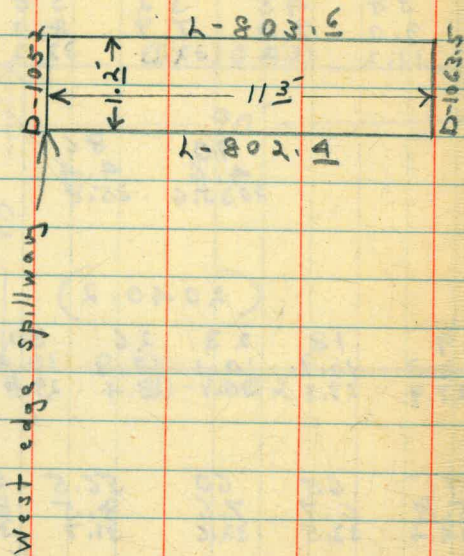 L-803.6
D-1052
1.2'
11 5'
D-1063.5
L-802.4
West edge spillway